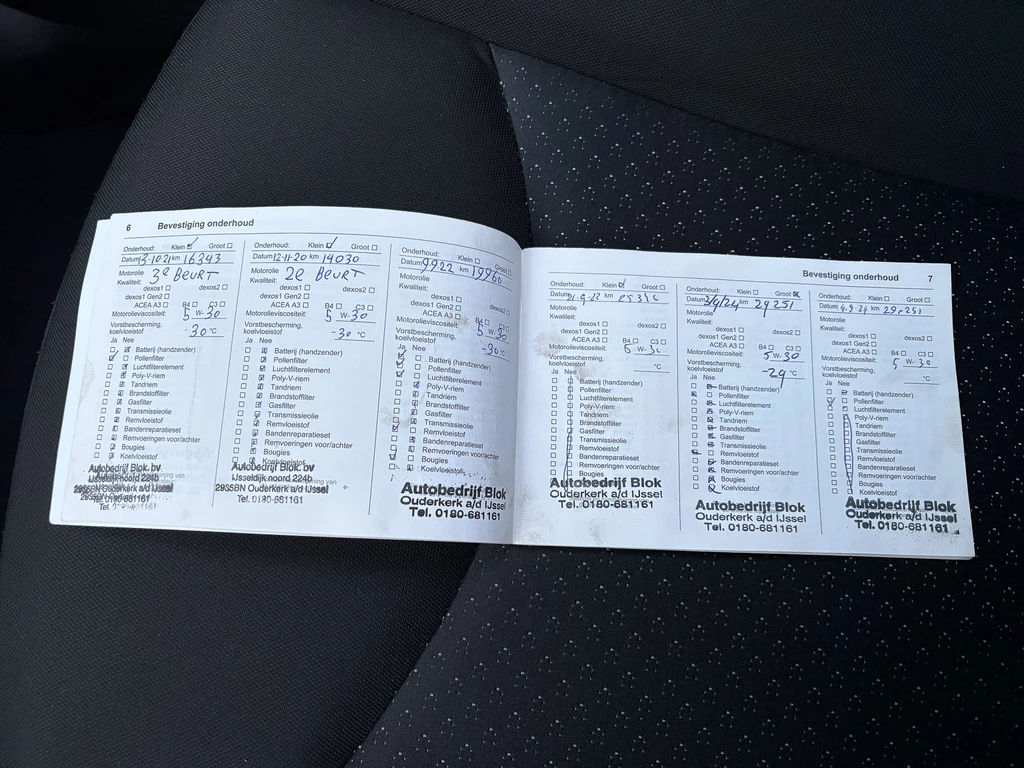 6 Bevestiging onderhoud
Onderhoud: Klein Groot
Datum 13-10-21 km 16343
Motorolie 3e BEURT
Kwaliteit:
dexos1 dexos2
dexos1 Gen2
ACEA A3 B4 C3
Motorolieviscositeit: 5 W- 30
Vorstbescherming,
koelvloeistof -30 °C
Ja Nee
Batterij (handzender)
Pollenfilter
Luchtfilterelement
Poly-V-riem
Tandriem
Brandstoffilter
Gasfilter
Transmissieolie
Remvloeistof
Bandenreparatieset
Remvoeringen voor/achter
Bougies
Koelvloeistof
Autobedrijf Blok. bv
IJsseldijk noord 224b
2935BN Ouderkerk a/d IJssel
Tel. 0180-681161
Onderhoud: Klein Groot
Datum 12-11-20 km 14030
Motorolie 2e BEURT
Kwaliteit:
dexos1 dexos2
dexos1 Gen2
ACEA A3 B4 C3
Motorolieviscositeit: 5 W- 30
Vorstbescherming,
koelvloeistof -30 °C
Ja Nee
Batterij (handzender)
Pollenfilter
Luchtfilterelement
Poly-V-riem
Tandriem
Brandstoffilter
Gasfilter
Transmissieolie
Remvloeistof
Bandenreparatieset
Remvoeringen voor/achter
Bougies
Koelvloeistof
Autobedrijf Blok. bv
IJsseldijk noord 224b
2935BN Ouderkerk a/d IJssel
Tel. 0180-681161
Onderhoud: Klein Groot
Datum 9.9.22 km 19960
Motorolie
Kwaliteit:
dexos1 dexos2
dexos1 Gen2
ACEA A3 B4 C3
Motorolieviscositeit: 5 W- 30
Vorstbescherming,
koelvloeistof -30 °C
Ja Nee
Batterij (handzender)
Pollenfilter
Luchtfilterelement
Poly-V-riem
Tandriem
Brandstoffilter
Gasfilter
Transmissieolie
Remvloeistof
Bandenreparatieset
Remvoeringen voor/achter
Bougies
Koelvloeistof
Autobedrijf Blok
Ouderkerk a/d IJssel
Tel. 0180-681161
Bevestiging onderhoud 7
Onderhoud: Klein Groot
Datum km
Motorolie
Kwaliteit:
dexos1 dexos2
dexos1 Gen2
ACEA A3 B4 C3
Motorolieviscositeit: 5 W- 30
Vorstbescherming,
koelvloeistof °C
Ja Nee
Batterij (handzender)
Pollenfilter
Luchtfilterelement
Poly-V-riem
Tandriem
Brandstoffilter
Gasfilter
Transmissieolie
Remvloeistof
Bandenreparatieset
Remvoeringen voor/achter
Bougies
Koelvloeistof
Autobedrijf Blok
Ouderkerk a/d IJssel
Tel. 0180-681161
Onderhoud: Klein Groot
Datum km 29251
Motorolie
Kwaliteit:
dexos1 dexos2
dexos1 Gen2
ACEA A3 B4 C3
Motorolieviscositeit: 5 W- 30
Vorstbescherming,
koelvloeistof -29 °C
Ja Nee
Batterij (handzender)
Pollenfilter
Luchtfilterelement
Poly-V-riem
Tandriem
Brandstoffilter
Gasfilter
Transmissieolie
Remvloeistof
Bandenreparatieset
Remvoeringen voor/achter
Bougies
Koelvloeistof
Autobedrijf Blok
Ouderkerk a/d IJssel
Tel. 0180-681161
Onderhoud: Klein Groot
Datum 4.9.24 km 29.251
Motorolie
Kwaliteit:
dexos1 dexos2
dexos1 Gen2
ACEA A3 B4 C3
Motorolieviscositeit: 5 W- 30
Vorstbescherming,
koelvloeistof °C
Ja Nee
Batterij (handzender)
Pollenfilter
Luchtfilterelement
Poly-V-riem
Tandriem
Brandstoffilter
Gasfilter
Transmissieolie
Remvloeistof
Bandenreparatieset
Remvoeringen voor/achter
Bougies
Koelvloeistof
Autobedrijf Blok
Ouderkerk a/d IJssel
Tel. 0180-681161